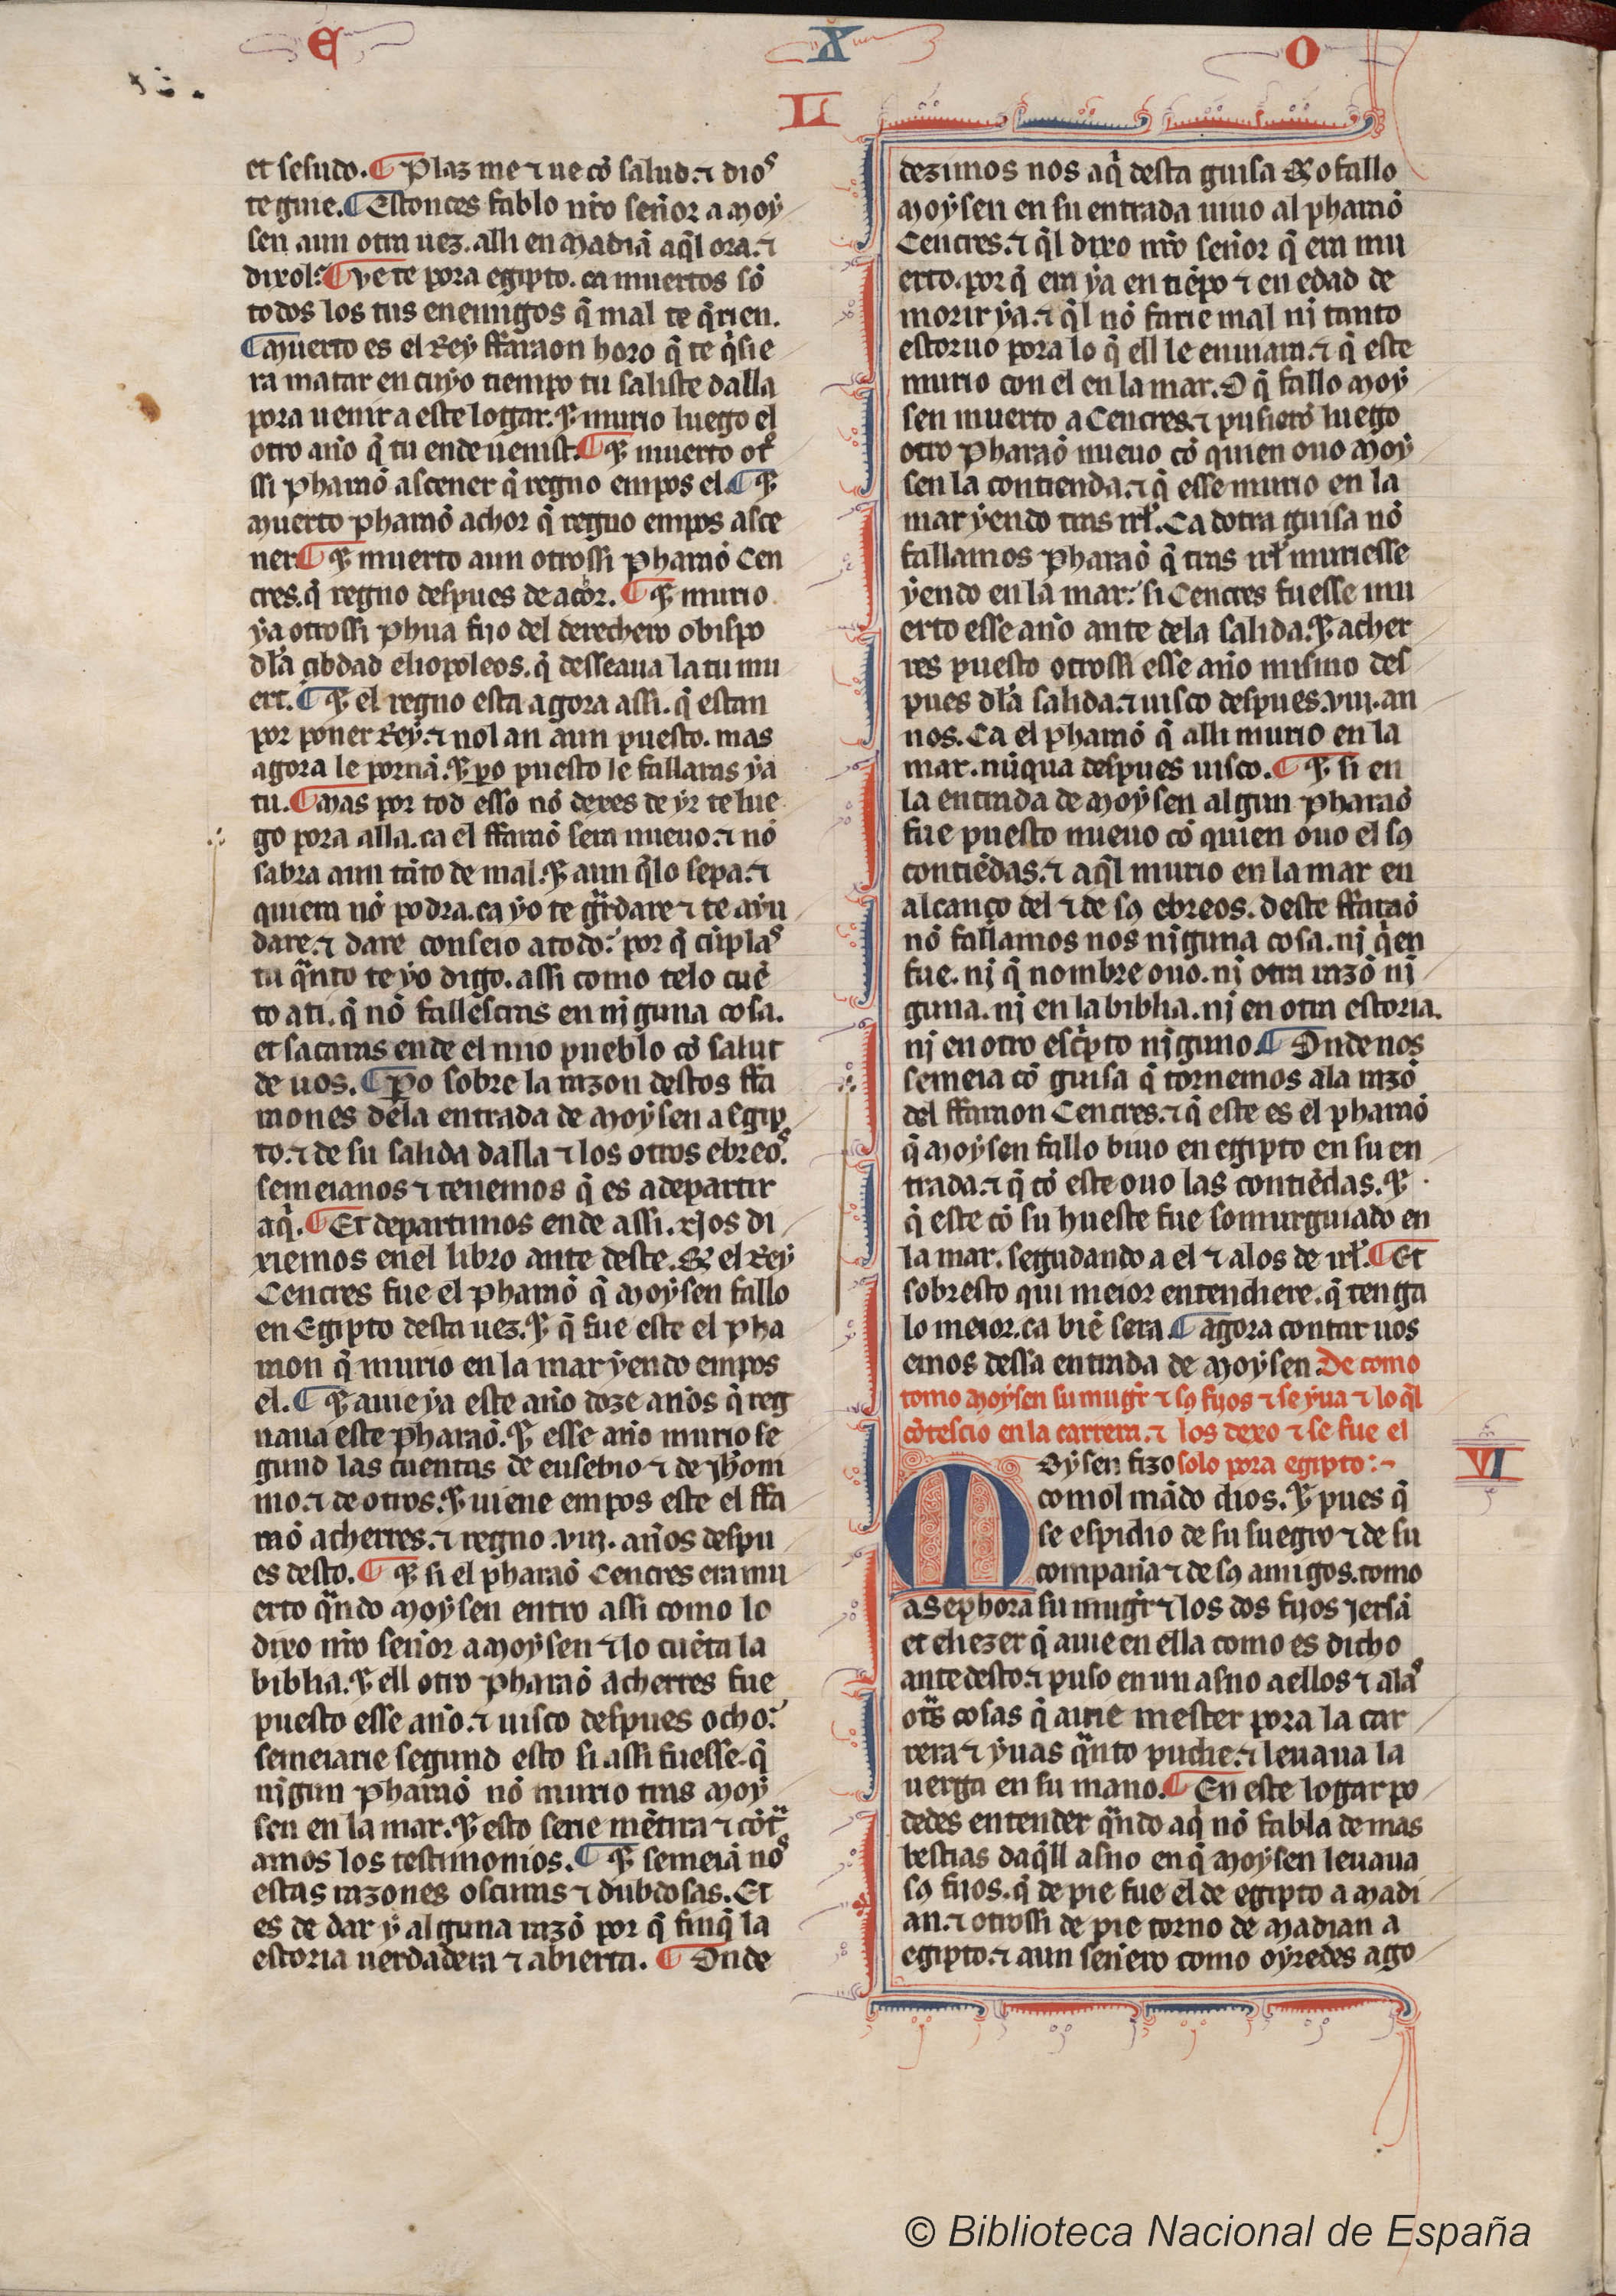 E X O
L
et sesudo. ¶ Plaz me ⁊ ue cõ salud. ⁊ dios
te guie. ¶ Estonces fablo nr̃o señor a moy
sen aun otra uez. alli en madiã aq̃l ora. ⁊
dixol. ¶ ve te pora egipto. ca muertos sõ
todos los tus enemigos q̃ mal te q̃rien.
¶ muerto es el Rey ffaraon horo q̃ te q̃sie
ra matar en cuyo tiempo tu saliste dalla
pora uenir a este logar. ⁊ murio luego el
otro año q̃ tu ende uenist. ¶ ⁊ muerto otr̃
ssi pharaõ ascener q̃ regno empos el. ¶ ⁊
muerto pharaõ achor q̃ regno empos asce
ner. ¶ ⁊ muerto aun otrossi pharaõ Cen
cres. q̃ regno despues de acor. ¶ ⁊ murio
ya otrossi phua fijo del derechero obispo
dl̃a çibdad eliopoleos. q̃ desseaua la tu mu
ert. ¶ ⁊ el regno esta agora assi. q̃ estan
por poner Rey. ⁊ nol an aun puesto. mas
agora le pornã. ⁊ p̃o puesto le fallaras ya
tu. ¶ mas por tod esso nõ dexes de yr te lue
go pora alla. ca el ffaraõ sera nueuo. ⁊ nõ
sabra aun tãto de mal. ⁊ aun q̃lo sepa. ⁊
quiera nõ podra. ca yo te gr̃dare ⁊ te ayu
dare. ⁊ dare conseio a todo. por q̃ cũplas
tu q̃nto te yo digo. assi como telo cuẽ
to ati. q̃ nõ fallescas en nj guna cosa.
et sacaras ende el mio pueblo cõ salut
de uos. ¶ p̃o sobre la razon destos ffa
raones dela entrada de moysen a Egip
to. ⁊ de su salida dalla ⁊ los otros ebreos.
semeianos ⁊ tenemos q̃ es a departir
aq̃. ¶ Et departimos ende assi. Njos di
xiemos en el libro ante deste. Q̃ el Rey
Cencres fue el pharaõ q̃ moysen fallo
en Egipto desta uez. ⁊ q̃ fue este el pha
raon q̃ murio en la mar yendo empos
el. ¶ ⁊ auie ya este año doze años q̃ reg
naua este pharaõ. ⁊ esse año murio se
gund las cuentas de eusebio ⁊ de jh̃oni
mo. ⁊ de otros. ⁊ uiene empos este el ffa
raõ acherres. ⁊ regno .viij. años despu
es desto. ¶ ⁊ si el pharaõ Cencres era mu
erto q̃ndo moysen entro assi como lo
dixo nr̃o señor a moysen ⁊ lo cuẽta la
biblia. ⁊ ell otro pharaõ acherres fue
puesto esse año. ⁊ uisco despues ocho.
semeiarie segund esto si assi fuesse. q̃
njgun pharaõ nõ murio tras moy
sen en la mar. ⁊ esto serie mẽtira ⁊ cõtr̃
amos los testimonios. ¶ ⁊ semeiã nos
estas razones oscuras ⁊ dubdosas. Et
es de dar y alguna razõ por q̃ finq̃ la
estoria uerdadera ⁊ abierta. ¶ Onde
dezimos nos aq̃ desta guisa Q̃ o fallo
moysen en su entrada uiuo al pharaõ
Cencres. ⁊ q̃l dixo nr̃o señor q̃ era mu
erto. por q̃ era ya en tiẽpo ⁊ en edad de
morir ya. ⁊ q̃l nõ farie mal nj tanto
estoruo pora lo q̃ ell le enuiara. ⁊ q̃ este
murio con el en la mar. O q̃ fallo moy
sen muerto a Cencres. ⁊ pusierõ luego
otro pharaõ nueuo cõ quien ouo moy
sen la contienda. ⁊ q̃ esse murio en la
mar yendo tras irl̃. Ca dotra guisa nõ
fallamos pharaõ q̃ tras irl̃ muriesse
yendo en la mar. si Cencres fuesse mu
erto esse año ante dela salida. ⁊ acher
res puesto otrossi esse año mismo des
pues dl̃a salida. ⁊ uisco despues .viij. an
nos. Ca el pharaõ q̃ alli murio en la
mar. nũqua despues uisco. ¶ ⁊ si en
la entrada de moysen algun pharaõ
fue puesto nueuo cõ quien ouo el sꝯ
contiẽdas. ⁊ aq̃l murio en la mar en
alcanço del ⁊ de sꝯ ebreos. deste ffaraõ
nõ fallamos nos njguna cosa. nj q̃en
fue. nj q̃ nombre ouo. nj otra razõ nj
guna. nj en la biblia. nj en otra estoria.
nj en otro esc̃pto njguno. ¶ Onde nos
semeia cõ guisa q̃ tornemos ala razõ
del ffaraon Cencres. ⁊ q̃ este es el pharaõ
q̃ moysen fallo biuo en egipto en su en
trada. ⁊ q̃ cõ este ouo las contiẽdas. ⁊
q̃ este cõ su hueste fue somurguiado en
la mar. segudando a el ⁊ alos de irl̃. ¶ Et
sobresto qui meior entendiere. q̃ tenga
lo meior. ca biẽ sera. ¶ agora contar uos
emos dessa entrada de moysen. De como
tomo moysen su mugr̃ ⁊ sꝯ fijos ⁊ se yua ⁊ lo q̃l
cõtescio en la carrera. ⁊ los dexo ⁊ se fue el
solo pora egipto:~
VI
Moysen fizo
comol mãdo dios. ⁊ pues q̃
se espidio de su suegro ⁊ de su
compaña ⁊ de sꝯ amigos. tomo
a Sephora su mugr̃ ⁊ los dos fijos jersã
et eliezer q̃ auie en ella como es dicho
ante desto. ⁊ puso en un asno a ellos ⁊ alas
otr̃s cosas q̃ auie mester pora la car
rera ⁊ yuas q̃nto pudie. ⁊ leuaua la
uerga en su mano. ¶ En este logar po
dedes entender q̃ndo aq̃ nõ fabla de mas
bestias daq̃ll asno en q̃ moysen leuaua
sꝯ fijos. q̃ de pie fue el de egipto a madi
an. ⁊ otrossi de pie torno de madian a
egipto. ⁊ aun señero como oyredes ago
© Biblioteca Nacional de España